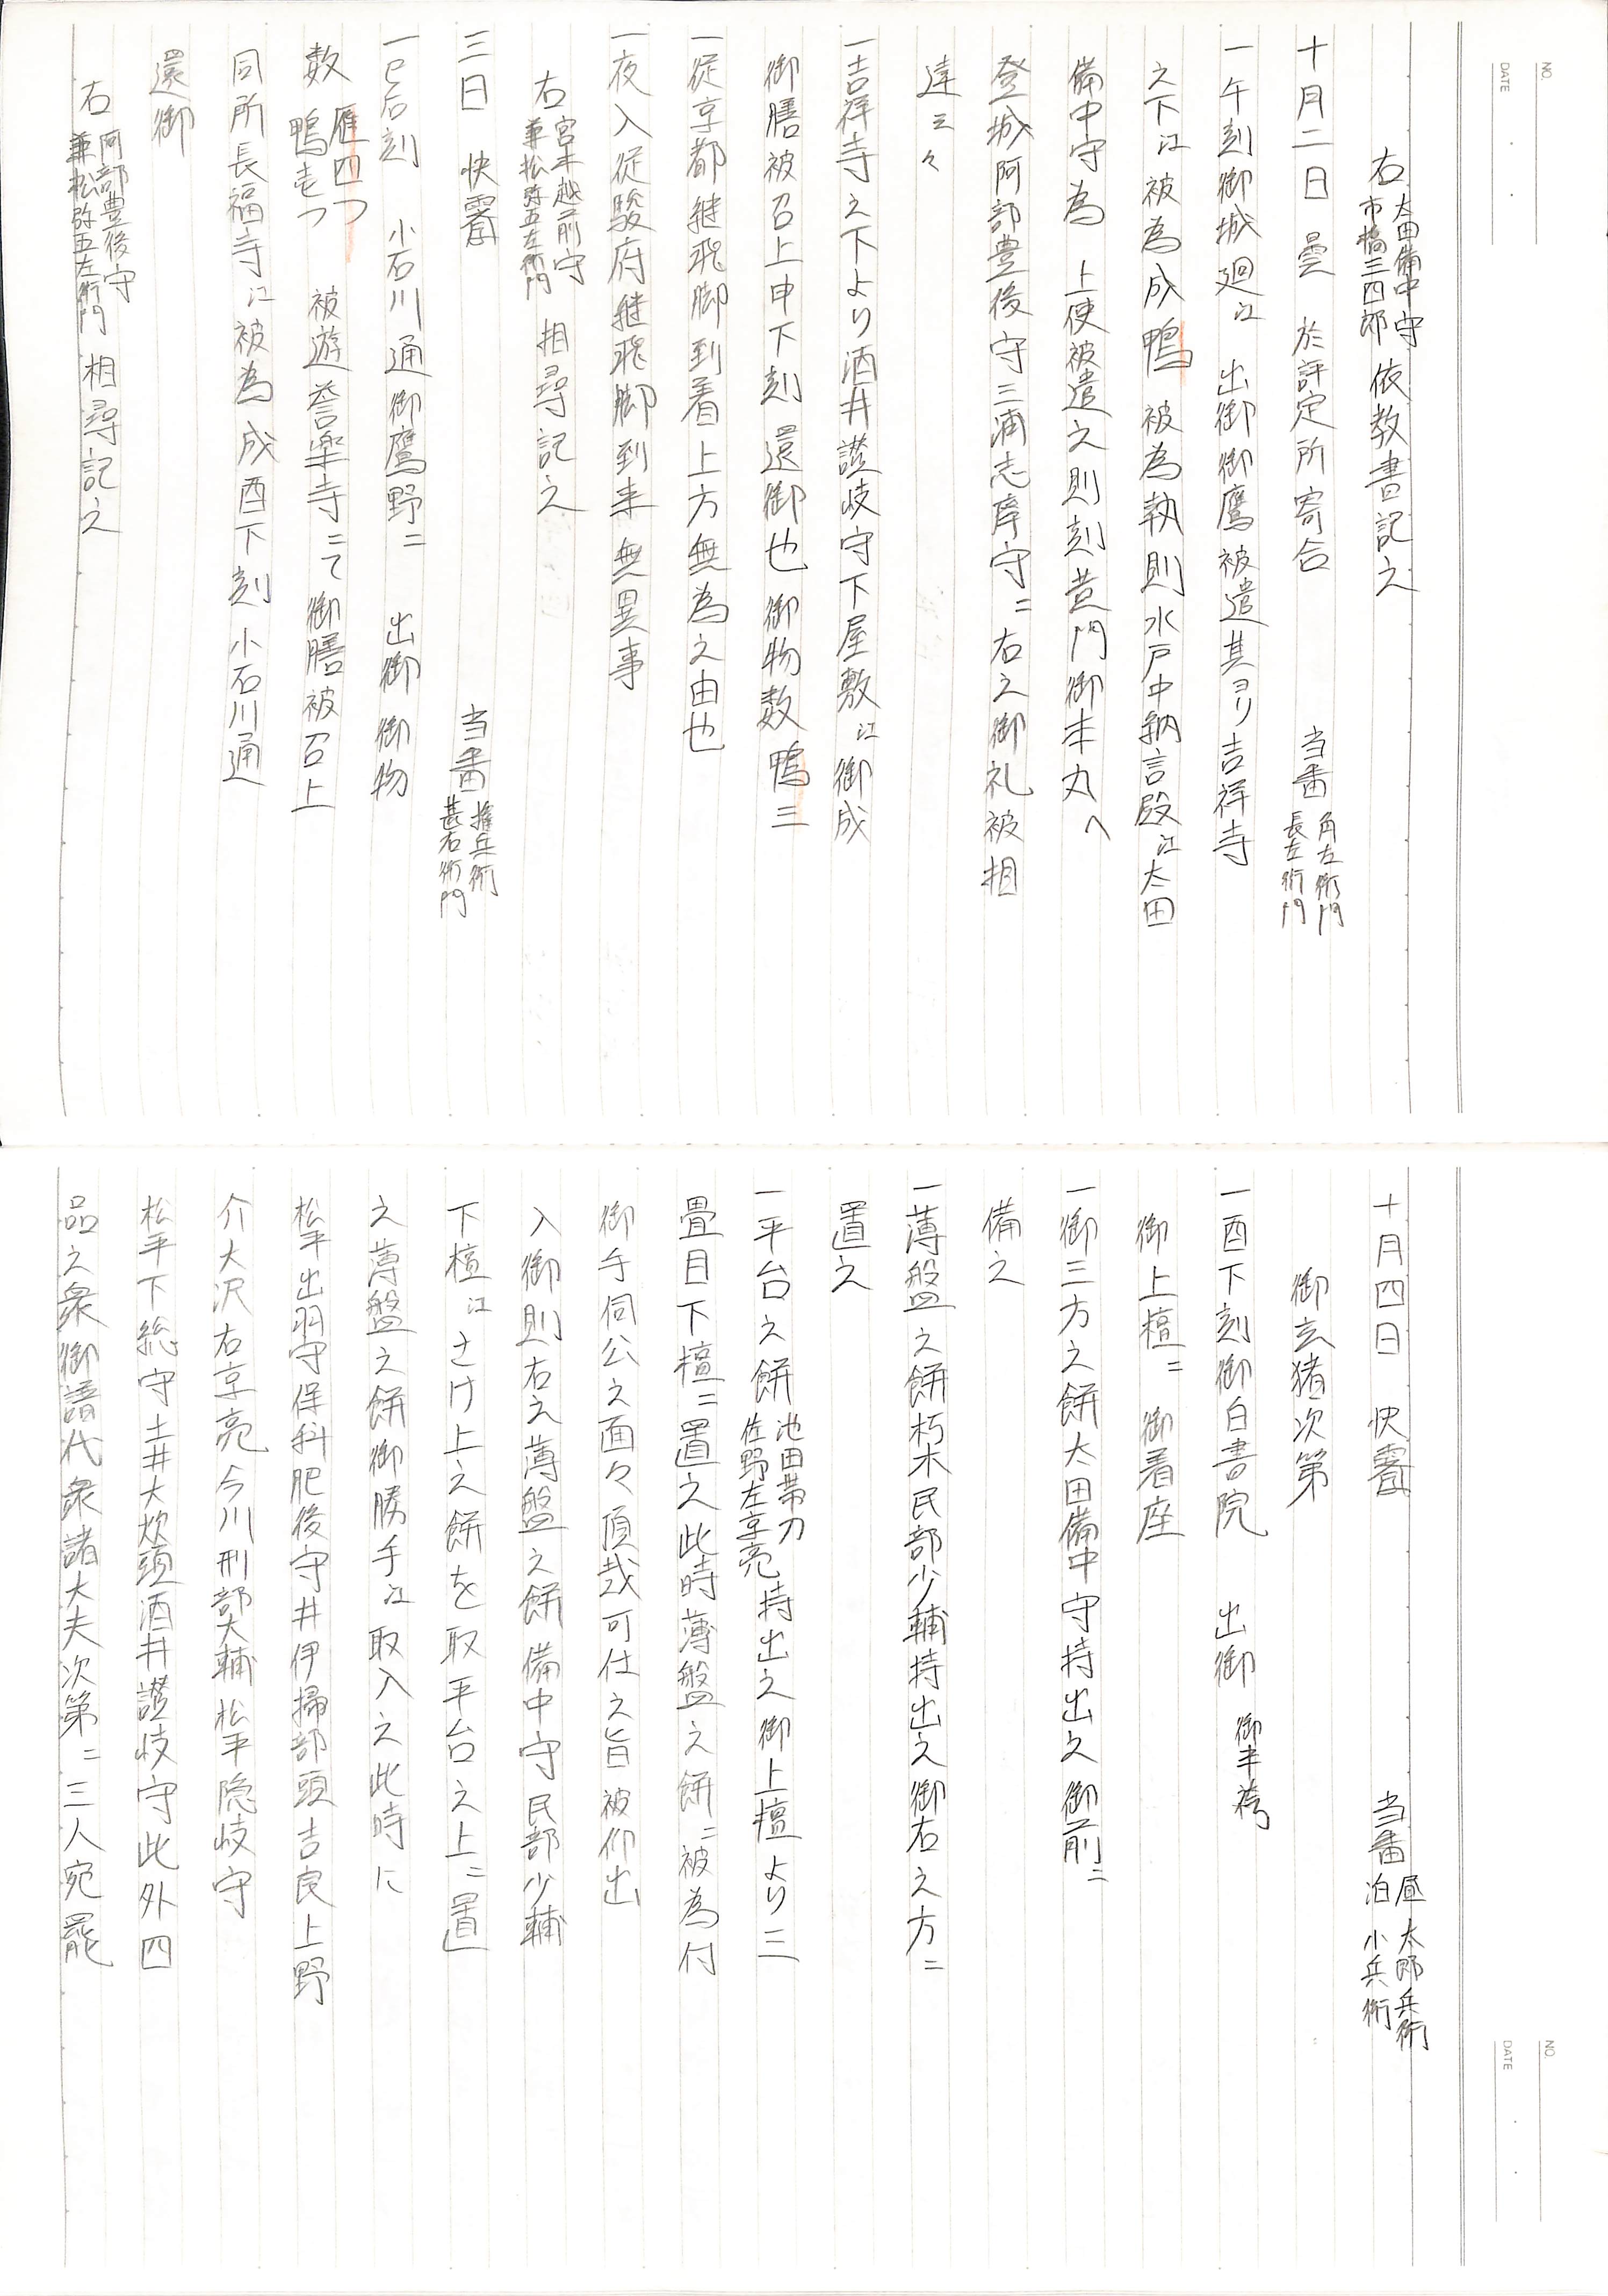 NO.
DATE
右 太田備中守 市橋三四郎 依教書記之
十月二日 曇 於評定所寄合 当番 角左衛門 長左衛門
一午刻御城廻江 出御御鷹被遣其ヨリ吉祥寺
之下江被為成鴨 被為執則水戸中納言殿江太田
備中守為 上使被遣之則刻黄門御本丸へ
登城阿部豊後守三浦志摩守ニ右之御礼被相
達云々
一吉祥寺之下より酒井讃岐守下屋敷江御成
御膳被召上申下刻還御也御物数鴨三
一従京都継飛脚到着上方無為之由也
一夜入従駿府継飛脚到来無異事
右 宮本越前守 兼松弥五左衛門 相尋記之
三日 快霽 当番 権兵衛 甚右衛門
一巳后刻 小石川通御鷹野ニ 出御 御物
数 雁四つ 鴨壱つ 被遊誉楽寺ニて御膳被召上
同所長福寺江被為成酉下刻小石川通
還御
右 阿部豊後守 兼松弥五左衛門 相尋記之
NO.
DATE
十月四日 快霽 当番 昼 太郎兵衛 泊 小兵衛
御玄猪次第
一酉下刻御白書院 出御 御半袴
御上檀ニ 御着座
一御三方之餅太田備中守持出之御前ニ
備之
一薄盤之餅朽木民部少輔持出之御右之方ニ
置之
一平台之餅 池田帯刀 佐野左京亮 持出之御上檀より三
畳目下檀ニ置之此時薄盤之餅ニ被為付
御手伺公之面々頂戴可仕之旨被仰出
入御則右之薄盤之餅備中守民部少輔
下檀江さけ上之餅を取平台之上ニ置
之薄盤之餅御勝手江取入之此時に
松平出羽守保科肥後守井伊掃部頭吉良上野
介大沢右京亮今川刑部大輔松平隠岐守
松平下総守土井大炊頭酒井讃岐守此外四
品之衆御譜代衆諸大夫次第ニ三人宛罷